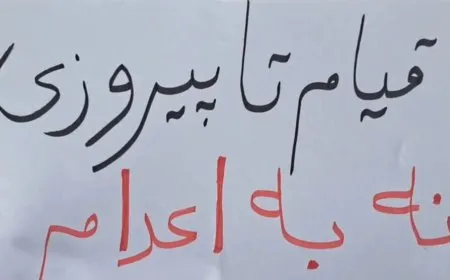 قیام تا پیروزی
نه به اعدام